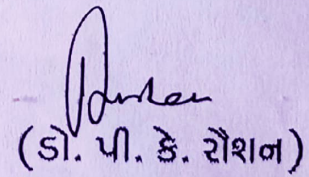 (ડો. પી. કે. રૌશન)